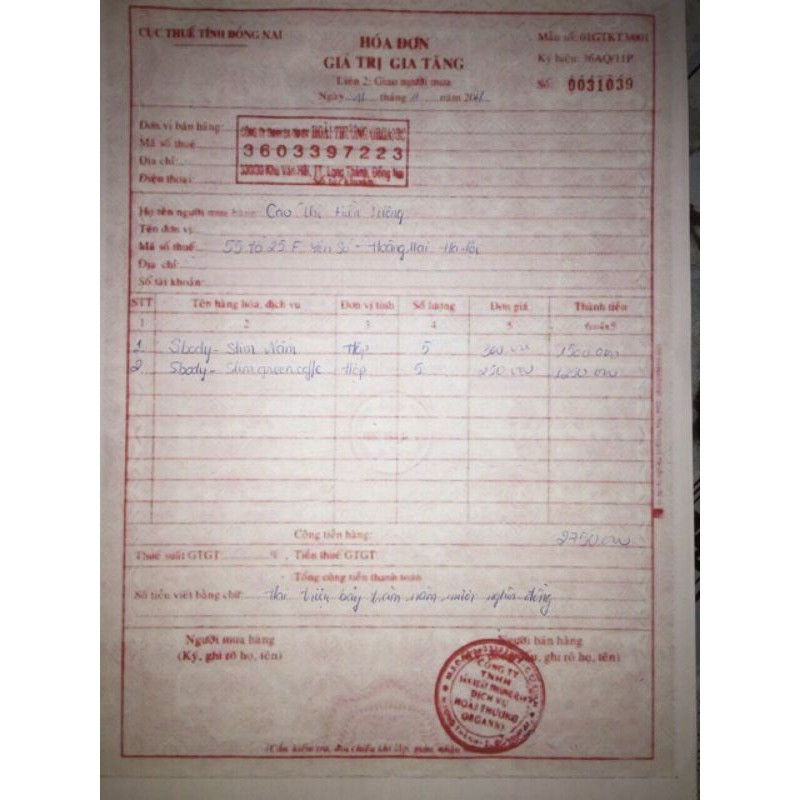 CỤC THUẾ TỈNH ĐỒNG NAI
HÓA ĐƠN
GIÁ TRỊ GIA TĂNG
Liên 2: Giao người mua
Ngày tháng năm 201
Mẫu số: 01GTKT3/001
Ký hiệu: 36AQ/11P
Số: 0031039
Đơn vị bán hàng: HOÀI THƯƠNG ORGANIC
Mã số thuế 3603397223
Địa chỉ: Khu Văn Hải, TT. Long Thành, Đồng Nai
Điện thoại:
Họ tên người mua hàng: Cao Thị
Tên đơn vị:
Mã số thuế 55 tổ 25 F. Yên Sở - Hoàng Mai Hà Nội
Địa chỉ
Số tài khoản:
STT Tên hàng hóa, dịch vụ Đơn vị tính Số lượng Đơn giá Thành tiền
1 2 3 4 5 6=4x5
1. Sbody - Slim Nấm Hộp 5 300.000 1500.000
2. Sbody - Slim green coffe Hộp 5 250.000 1.250.000
Cộng tiền hàng: 2750.000
Thuế suất GTGT % , Tiền thuế GTGT:
Tổng cộng tiền thanh toán
Số tiền viết bằng chữ: Hai triệu bảy trăm năm mươi nghìn đồng
Người mua hàng Người bán hàng
(Ký, ghi rõ họ, tên) ghi rõ họ, tên)
CÔNG TY
TNHH
DỊCH VỤ
HOÀI THƯƠNG
ORGANIC
(Cần kiểm tra, đối chiếu khi lập, giao, nhận